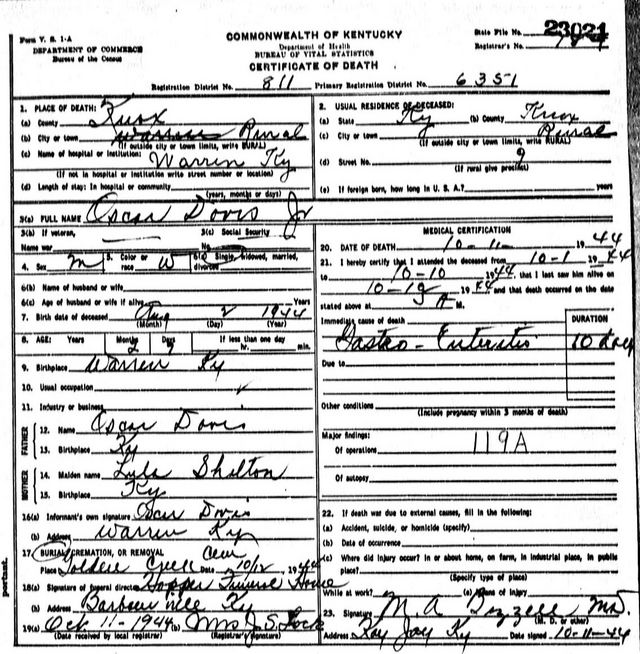 Form V. S. 1-A
DEPARTMENT OF COMMERCE
Bureau of the Census
COMMONWEALTH OF KENTUCKY
Department of Health
BUREAU OF VITAL STATISTICS
CERTIFICATE OF DEATH
State File No. 23021
Registrar's No.
Registration District No. 811 Primary Registration District No. 6351
1. PLACE OF DEATH:
(a) County Knox
(b) City or town Warren Rural
(If outside city or town limits, write RURAL)
(c) Name of hospital or institution: Warren Ky
(If not in hospital or institution write street number or location)
(d) Length of stay: In hospital or community
(years, months or days)
3(a) FULL NAME Oscar Davis Jr
3(b) If veteran, 3(c) Social Security
Name war No.
4. Sex M 5. Color or race W 6(a) Single, widowed, married, divorced
6(b) Name of husband or wife
6(c) Age of husband or wife if alive Years
7. Birth date of deceased Aug 2 1944
(Month) (Day) (Year)
8. AGE: Years Months 2 Days 9 If less than one day
hr. min.
9. Birthplace Warren Ky
10. Usual occupation
11. Industry or business
FATHER
12. Name Oscar Davis
13. Birthplace Ky
MOTHER
14. Maiden name Lula Shelton
15. Birthplace Ky
16(a) Informant's own signature Oscar Davis
(b) Address Warren Ky
17 BURIAL, CREMATION, OR REMOVAL Cem
Place Creek Date 10/12 1944
18(a) Signature of funeral director Hopper Funeral Home
(b) Address Barbourville Ky
19(a) Oct 11-1944 (b) Mrs J. S. Lock
(Date received by local registrar) (Registrar's signature)
2. USUAL RESIDENCE OF DECEASED:
(a) State Ky (b) County Knox
(c) City or town Rural
(If outside city or town limits, write RURAL)
(d) Street No.
(If rural give precinct)
(e) If foreign born, how long in U. S. A.? years
MEDICAL CERTIFICATION
20. DATE OF DEATH 10-11- 1944
21. I hereby certify that I attended the deceased from 10-1 1944
to 10-10 1944, that I last saw him alive on
10-10 1944 and that death occurred on the date
stated above at 5 A M.
Immediate cause of death DURATION
Gastro-Enteritis 10 days
Due to
Other conditions
(Include pregnancy within 3 months of death)
Major findings:
Of operations 119A
Of autopsy
22. If death was due to external causes, fill in the following:
(a) Accident, suicide, or homicide (specify)
(b) Date of occurrence
(c) Where did injury occur? In or about home, on farm, in industrial place, in public
place?
(Specify type of place)
While at work? (e) Means of injury
23. Signature M. A MD.
(M. D. or other)
Address Kay Jay Ky Date signed 10-11-44
portant.